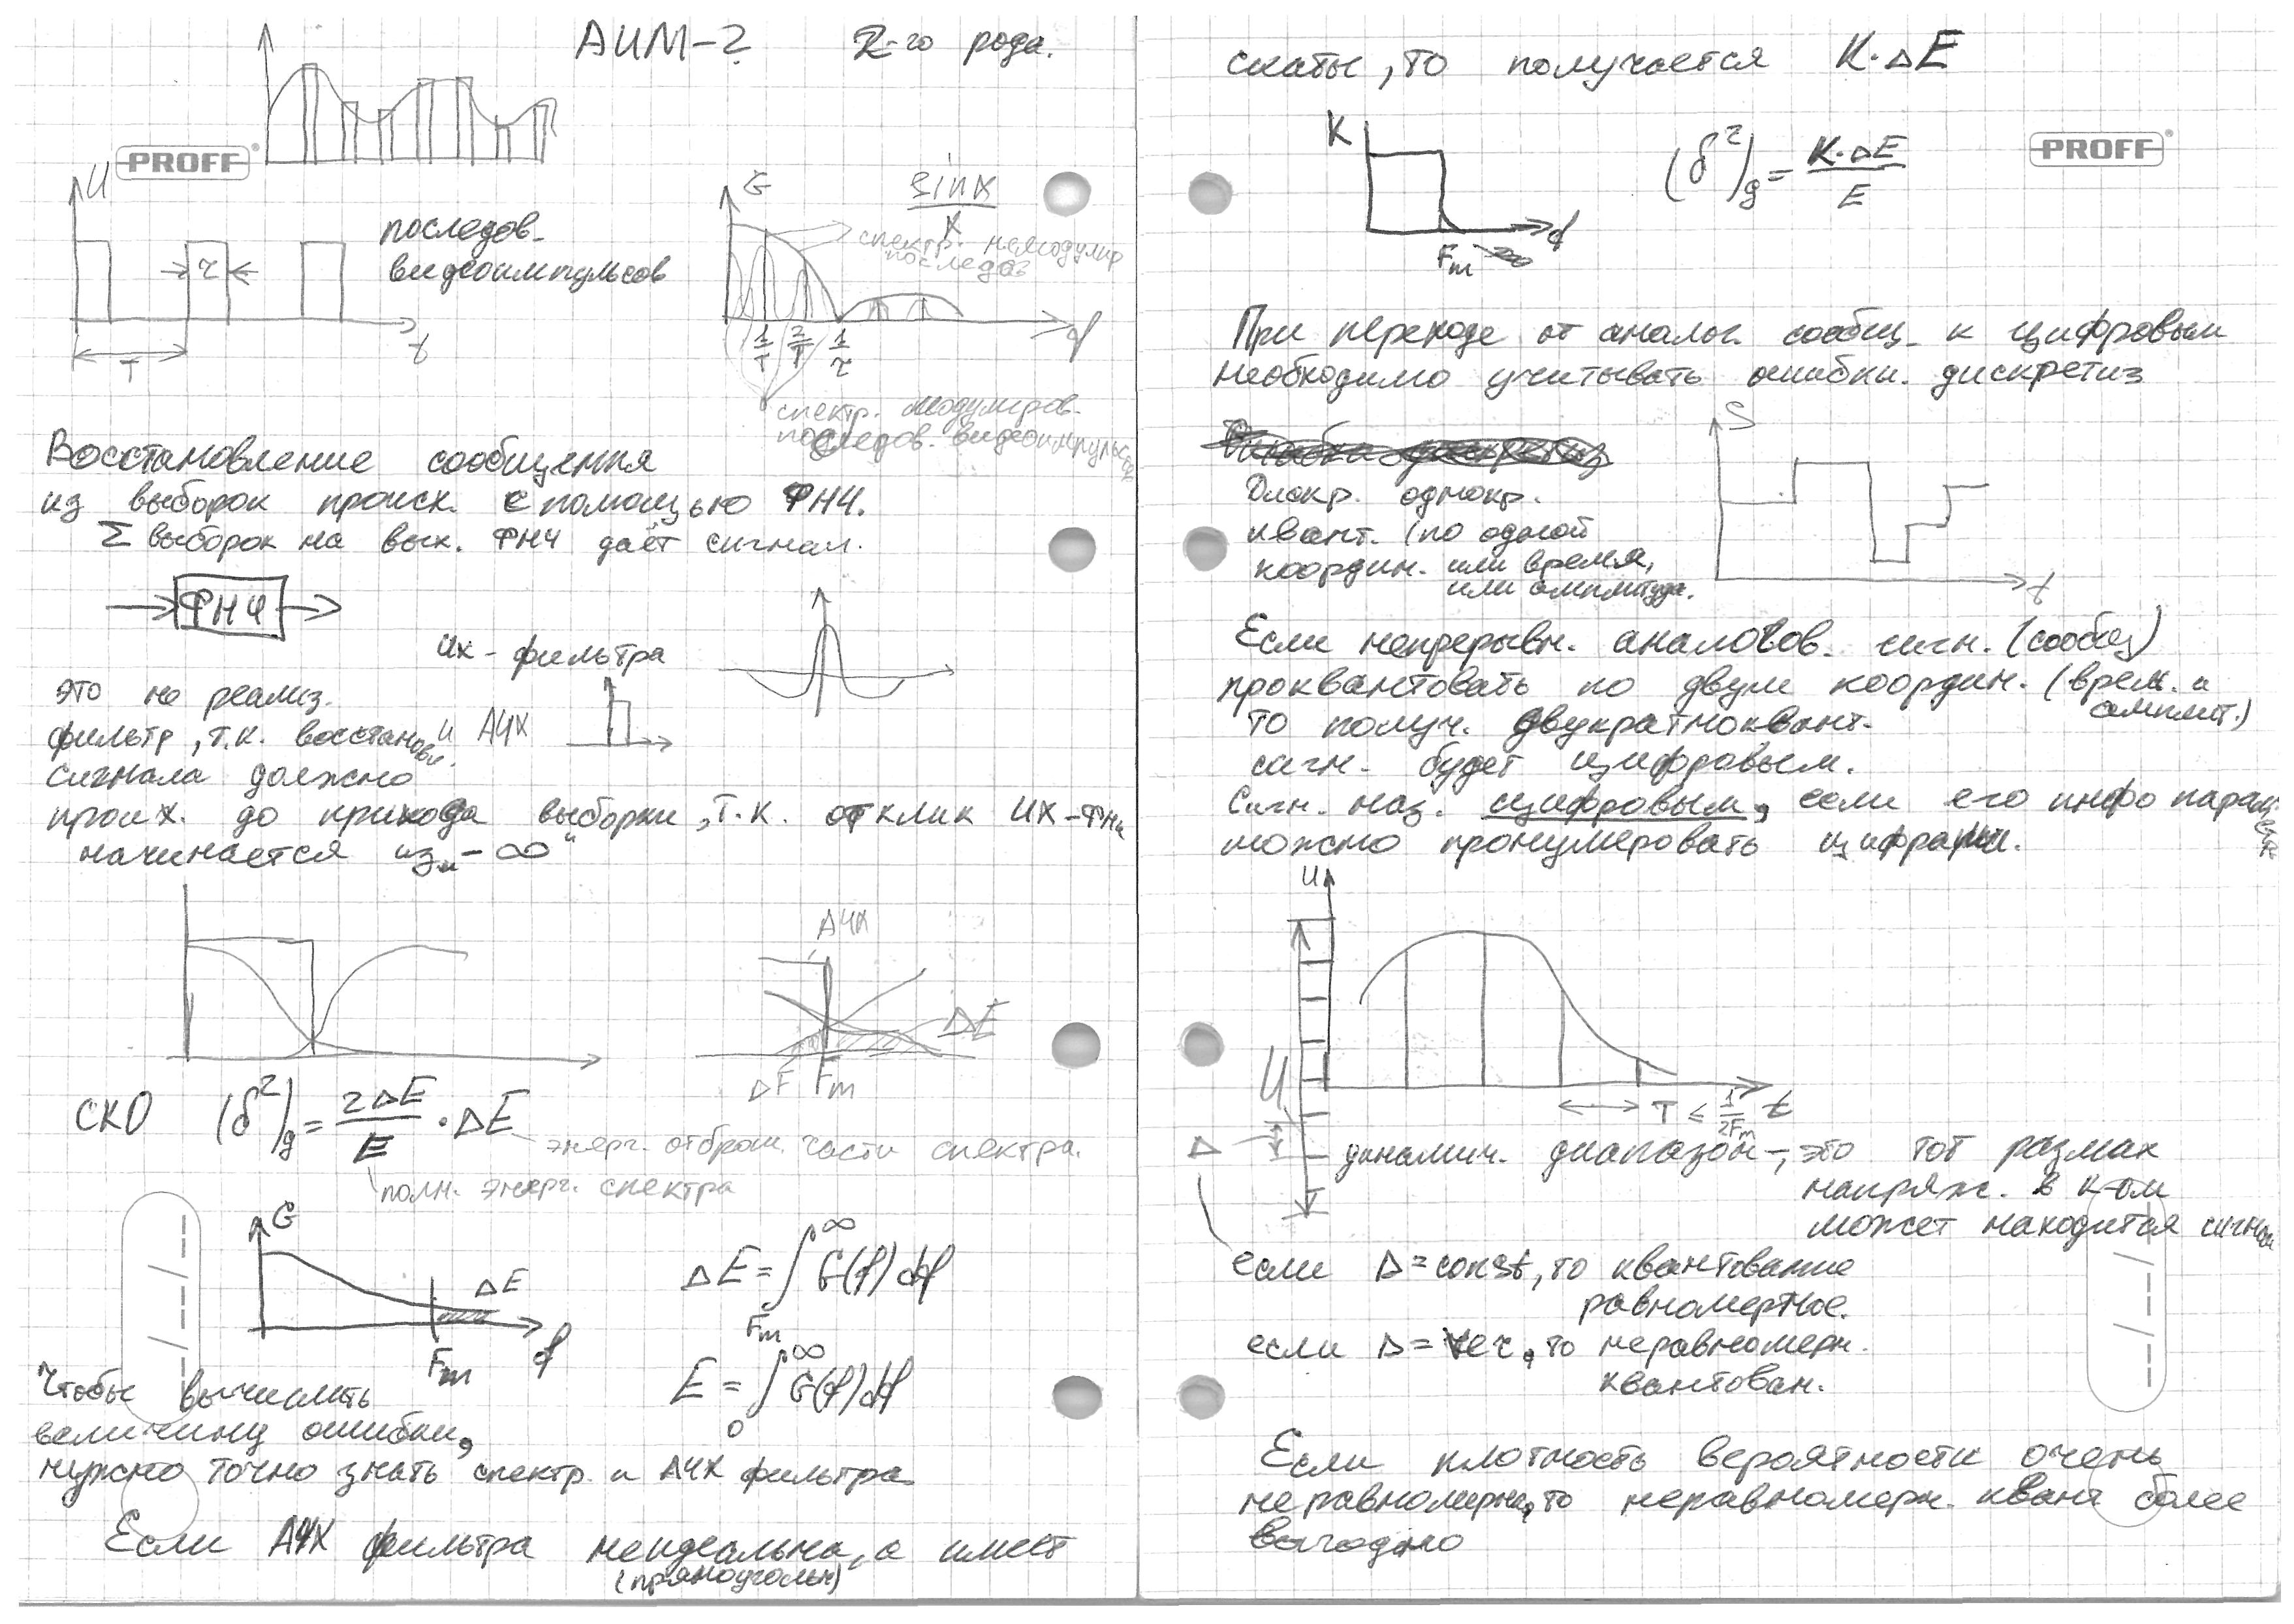 АИМ-2 2-го рода.
PROFF
U
последов-
видеоимпульсов
τ
T
t
G
sin x
x
спектр. немодулир
последов
1/T 2/T 1/τ
f
спектр. модулиров-
последов. видеоимпульсов
Восстановление сообщения
из выборок происх. с помощью ФНЧ.
Σ выборок на вых. ФНЧ даёт сигнал.
ФНЧ
ИХ - фильтра
и АЧХ
это не реализ.
фильтр, т.к. восстановл.
сигнала должно
проих. до прихода выборки, т.к. отклик ИХ-ФНЧ
начинается из „-∞"
АЧХ
ΔE
ΔF Fm
СКО (δ²)g = 2ΔE/E · ΔE
энерг. отброш. части спектра.
полн. энерг. спектра
G
ΔE
Fm
f
ΔE = ∫ G(f) df
∞
Fm
E = ∫ G(f) df
∞
0
Чтобы вычислить
величину ошибки,
нужно точно знать спектр и АЧХ фильтра
Если АЧХ фильтра неидеальна, а имеет
(прямоугольн)
скаты, то получается K·ΔE
K
Fm
f
(δ²)g = K·ΔE/E
PROFF
При переходе от аналог. сообщ- к цифровым
необходимо учитывать ошибки. дискретиз
однокр.
квант. (по одной
координ. или время,
или амплитуда.
S
t
Если непрерывн. аналогов. сигн. (сообщ)
проквантовать по двум координ. (врем. и
амплит.)
то получ. двукратноквант-
сигн- будет цифровым.
Сигн. наз. цифровым, если его инфо парам
можно пронумеровать цифрами.
U
U
Δ
T ≤ 1/2Fm
t
динамич. диапазон-, это тот размах
напряж. в к-ом
может находится сигнал
если Δ=const, то квантование
равномерное.
если Δ=var, то неравномерн.
квантован.
Если плотность вероятности очень
неравномерна, то неравномерн. квант более
выгодно